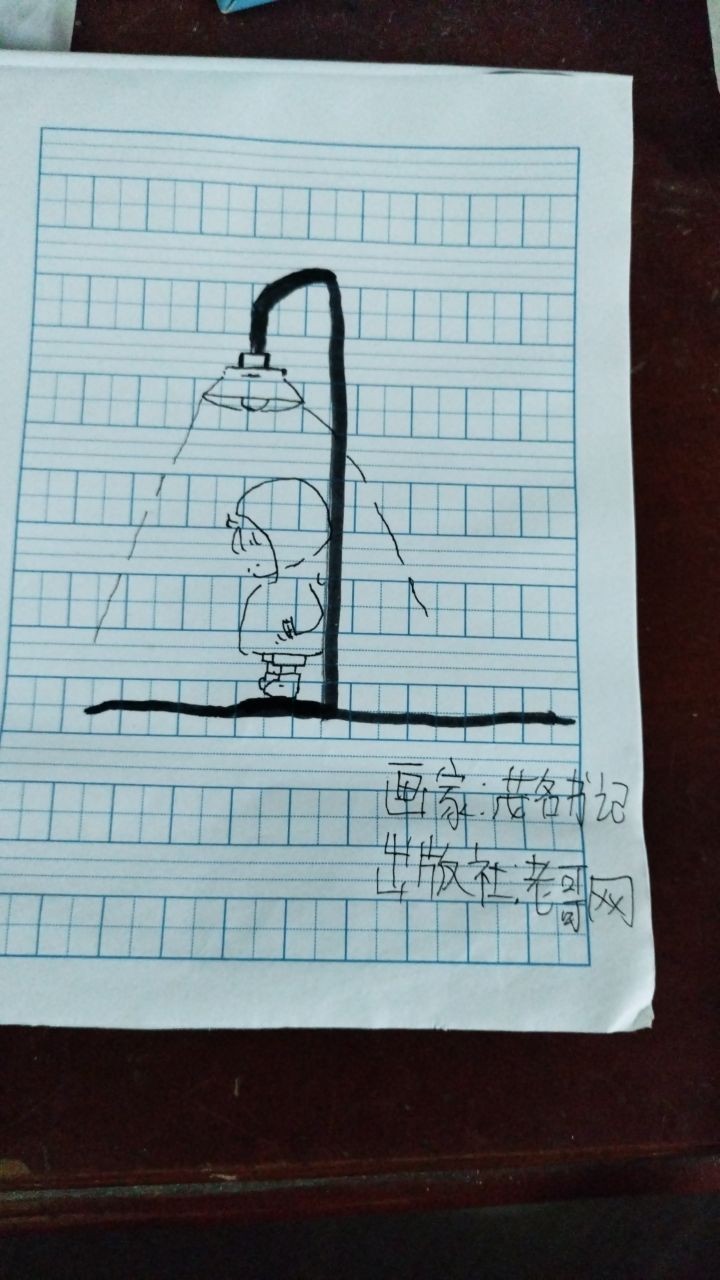 画家:茂名书记
出版社:老哥网